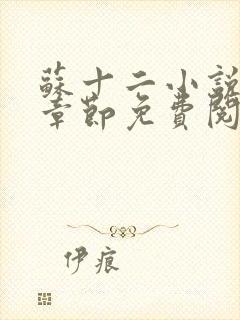 蘇十二小說
章節免費閱
伊痕